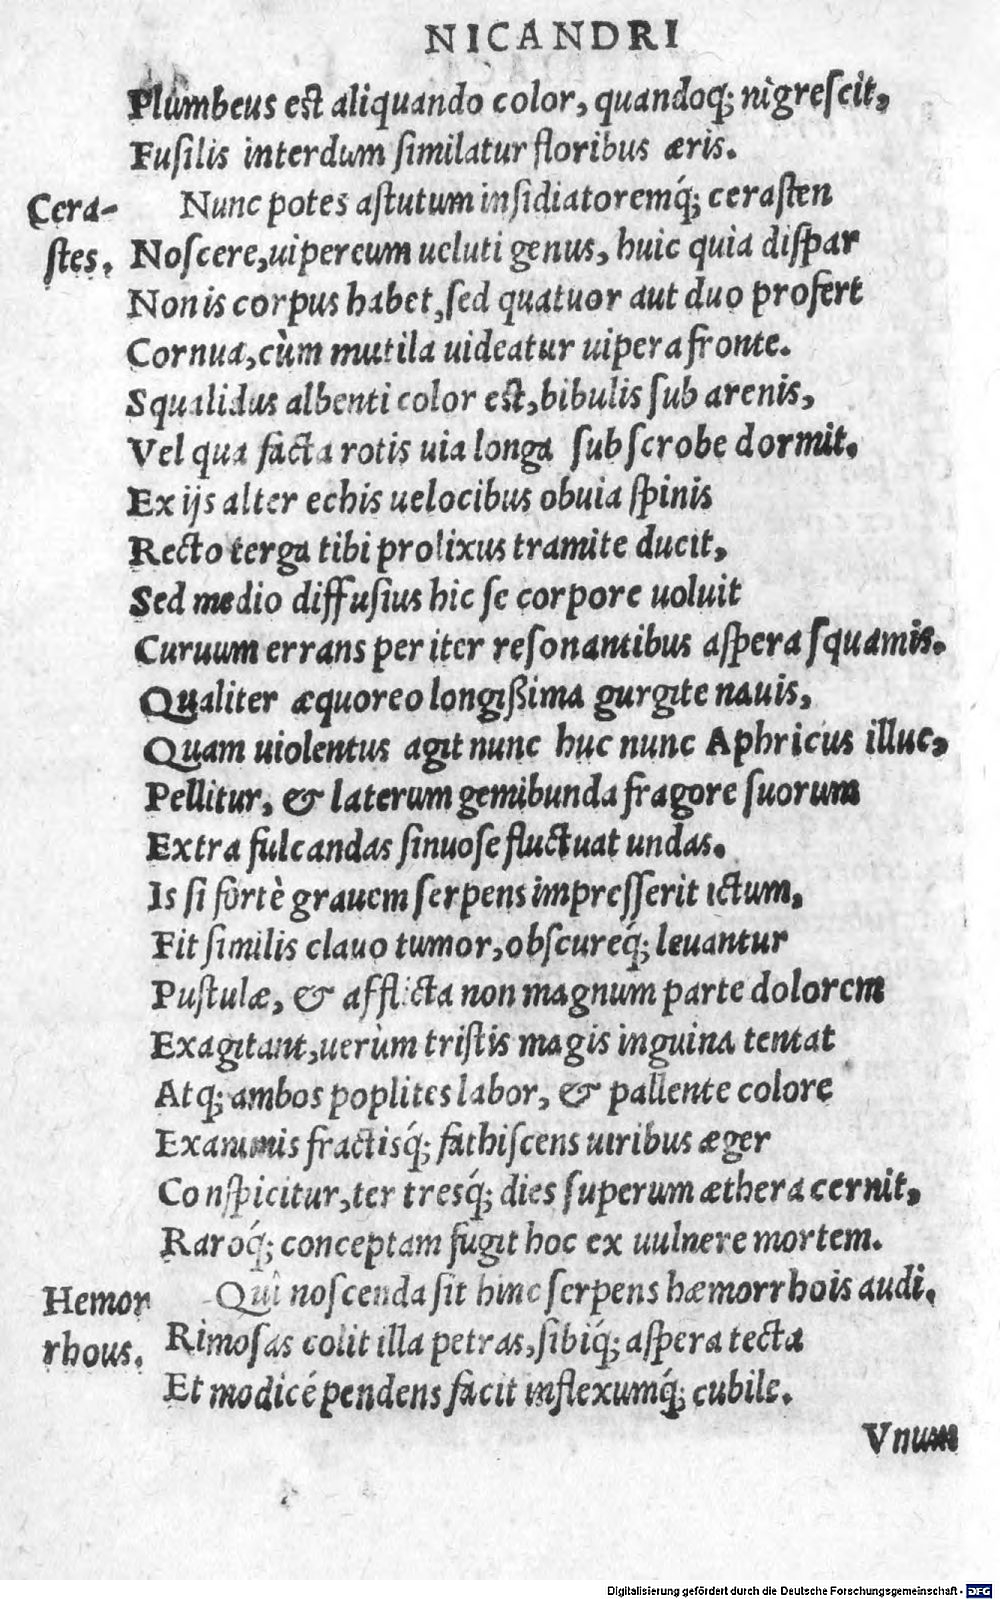 NICANDRI
Plumbeus est aliquando color, quandoq; nigreſcit,
Fuſilis interdum ſimilatur floribus æris.
Cera-
ſtes.
Nunc potes aſtutum inſidiatoremq́; ceraſten
Noſcere, uipereum ueluti genus, huic quia diſpar
Non is corpus habet, ſed quatuor aut duo profert
Cornua, cùm mutila uideatur uipera fronte.
Squalidus albenti color est, bibulis ſub arenis,
Vel qua facta rotis uia longa ſub ſcrobe dormit.
Ex ijs alter echis uelocibus obuia ſpinis
Recto terga tibi prolixus tramite ducit,
Sed medio diffuſius hic ſe corpore uoluit
Curuum errans per iter reſonantibus aſpera ſquamis.
Qualiter æquoreo longißima gurgite nauis,
Quam uiolentus agit nunc huc nunc Aphricus illuc,
Pellitur, & laterum gemibunda fragore ſuorum
Extra ſulcandas ſinuoſe fluctuat undas.
Is ſi fortè grauem ſerpens impreſſerit ictum,
Fit ſimilis clauo tumor, obſcureq́; leuantur
Puſtulæ, & afflicta non magnum parte dolorem
Exagitant, uerùm triſtis magis inguina tentat
Atq; ambos poplites labor, & pallente colore
Exanimis fractisq́; fathiſcens uiribus æger
Conſpicitur, ter tresq́; dies ſuperum æthera cernit,
Raroq́; conceptam fugit hoc ex uulnere mortem.
Hemor
rhous.
Qui noſcenda ſit hinc ſerpens hæmorrhois audi.
Rimoſas colit illa petras, ſibiq́; aſpera tecta
Et modicé pendens facit inflexumq́; cubile.
Vnum
Digitalisierung gefördert durch die Deutsche Forschungsgemeinschaft - DFG